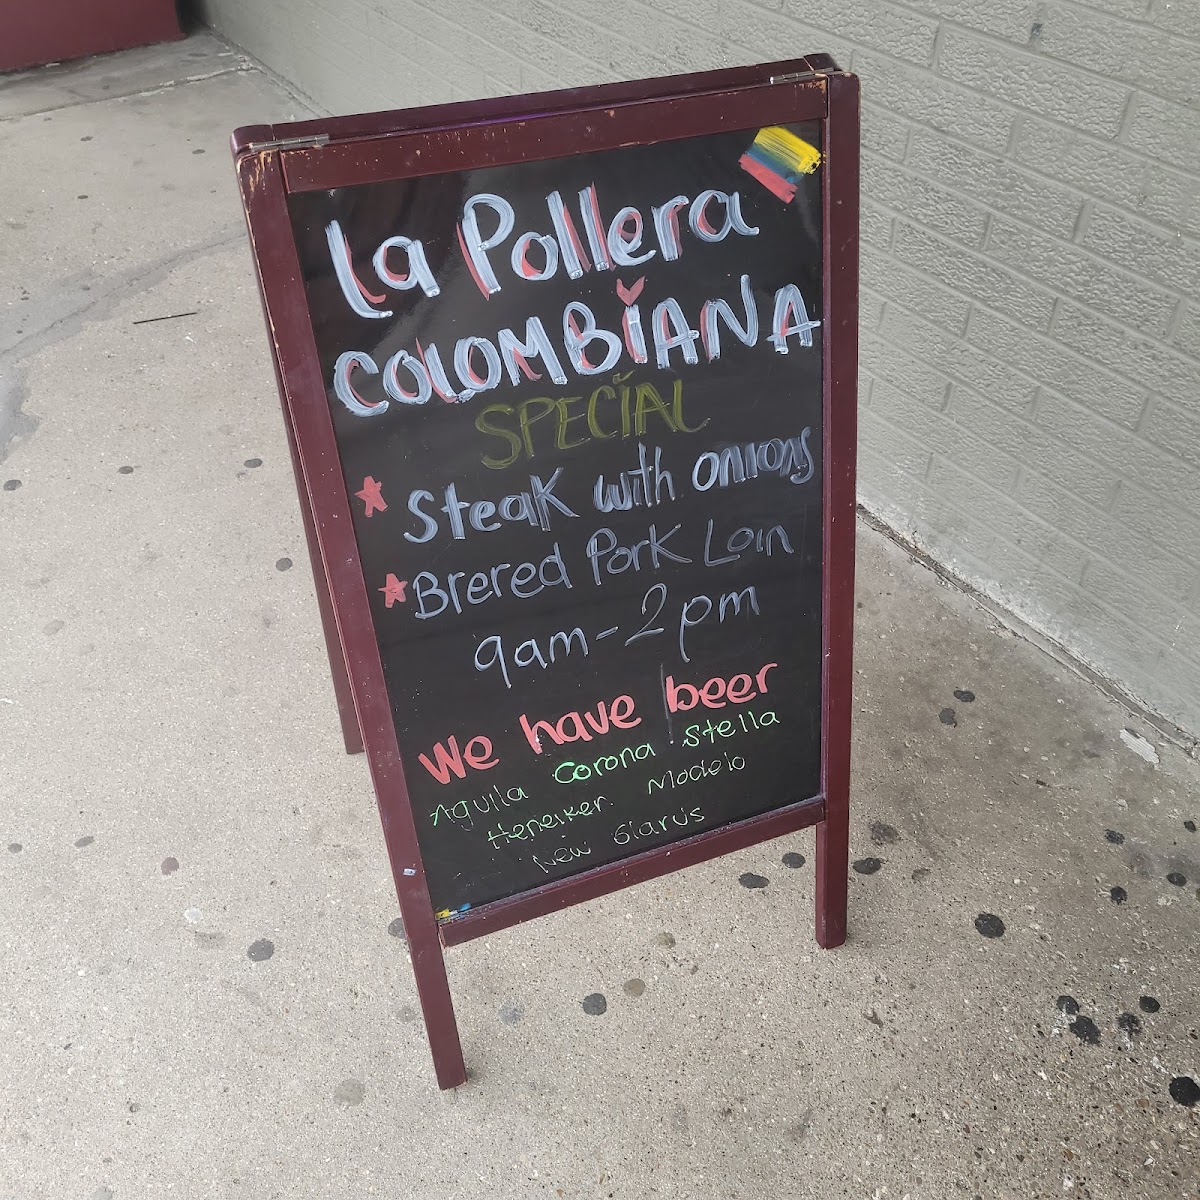 La Pollera
COLOMBiANA
SPECiAL
Steak with onions
Brered Pork Loin
9am-2pm
We have beer
Aguila Corona Stella
Heneiker. Modelo
New Glarus